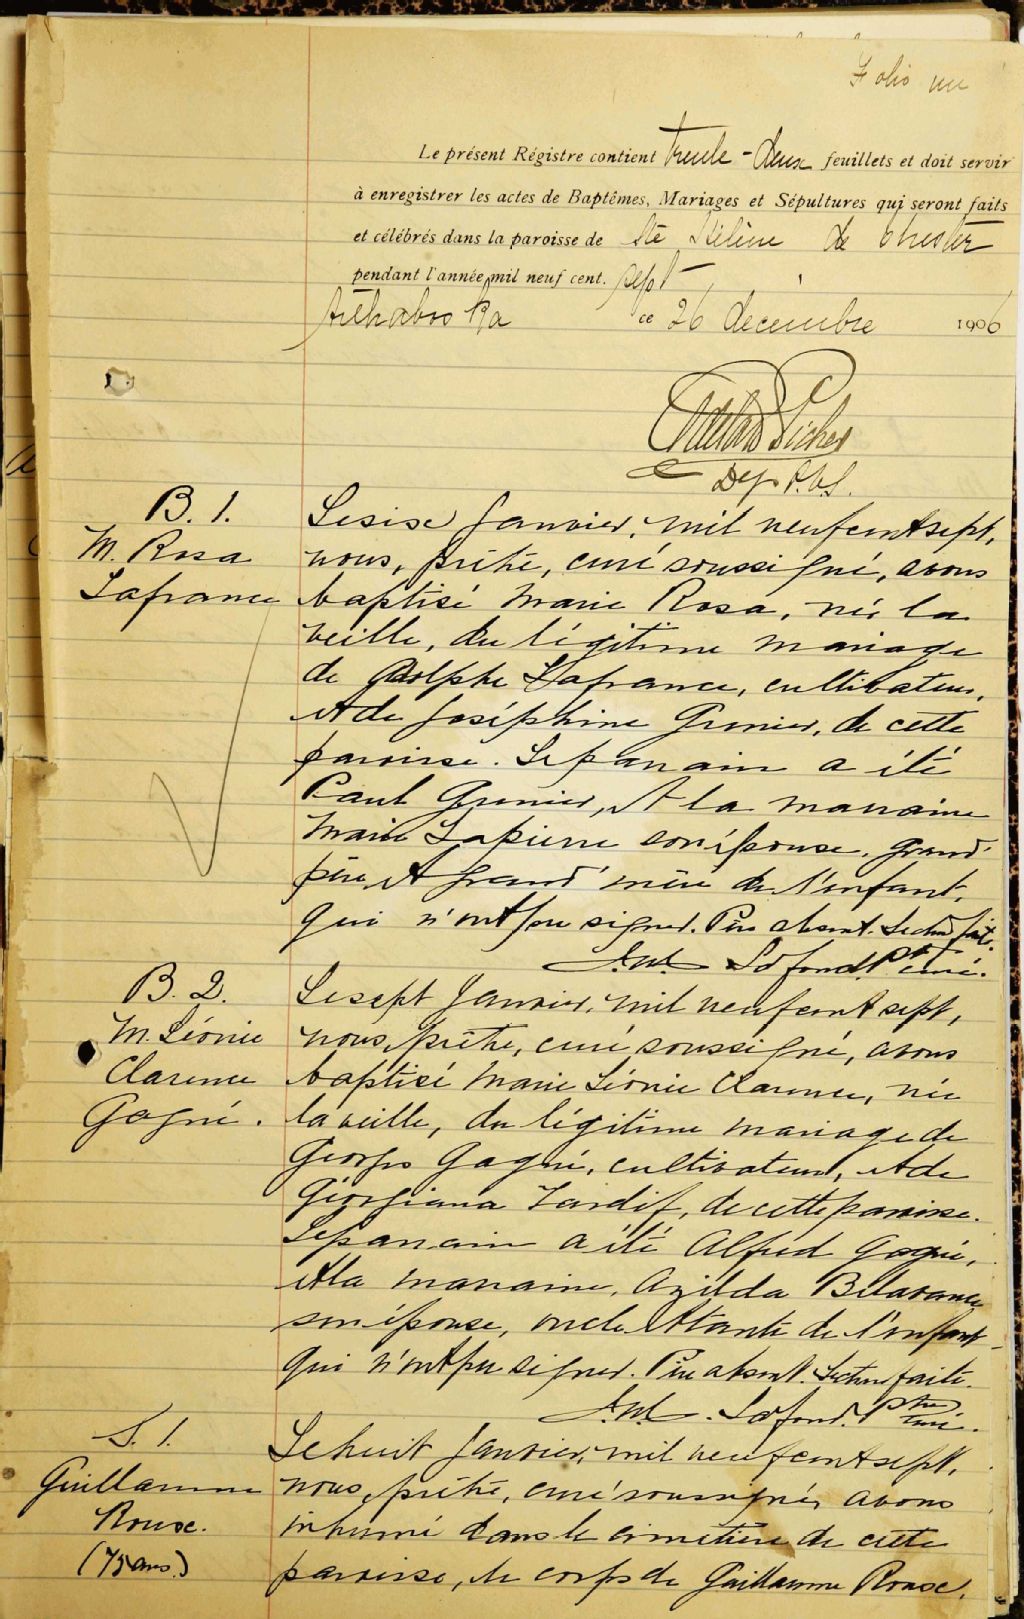 Folio un
Le présent Régistre contient trente-deux feuillets et doit servir
à enregistrer les actes de Baptêmes, Mariages et Sépultures qui seront faits
et célébrés dans la paroisse de Ste Hélène de Chester
pendant l'année mil neuf cent. sept
Arthabaska ce 26 décembre 1906
Picher
Dep P.C.S.
B. 1.
M. Rosa
Lafrance
Le six Janvier, mil neuf cent sept,
nous, prêtre, curé soussigné, avons
baptisé Marie Rosa, née la
veille, du légitime mariage
de Adolphe Lafrance, cultivateur,
et de Joséphine Grenier, de cette
paroisse. Le parrain a été
Paul Grenier, et la marraine
Marie Lapierre son épouse, grand-
père et grand'mère de l'enfant,
qui n'ont pu signer. Père absent. Lecture faite.
Lafond Ptre curé.
B. 2.
M. Léonie
Clarence
Gagné.
Le sept Janvier, mil neuf cent sept,
nous, prêtre, curé soussigné, avons
baptisé Marie Léonie Clarence, née
la veille, du légitime mariage de
Georges Gagné, cultivateur, et de
Géorgiana Tardif, de cette paroisse.
Le parrain a été Alfred Gagné,
et la marraine, Azilda
son épouse, oncle et tante de l'enfant
qui n'ont pu signer. Père absent. Lecture faite.
Lafond. Ptre curé.
S. 1.
Guillaume
Roux.
(75 ans.)
Le huit Janvier, mil neuf cent sept,
nous, prêtre, curé soussigné, avons
inhumé dans le cimetière de cette
paroisse, le corps de Guillaume Roux,